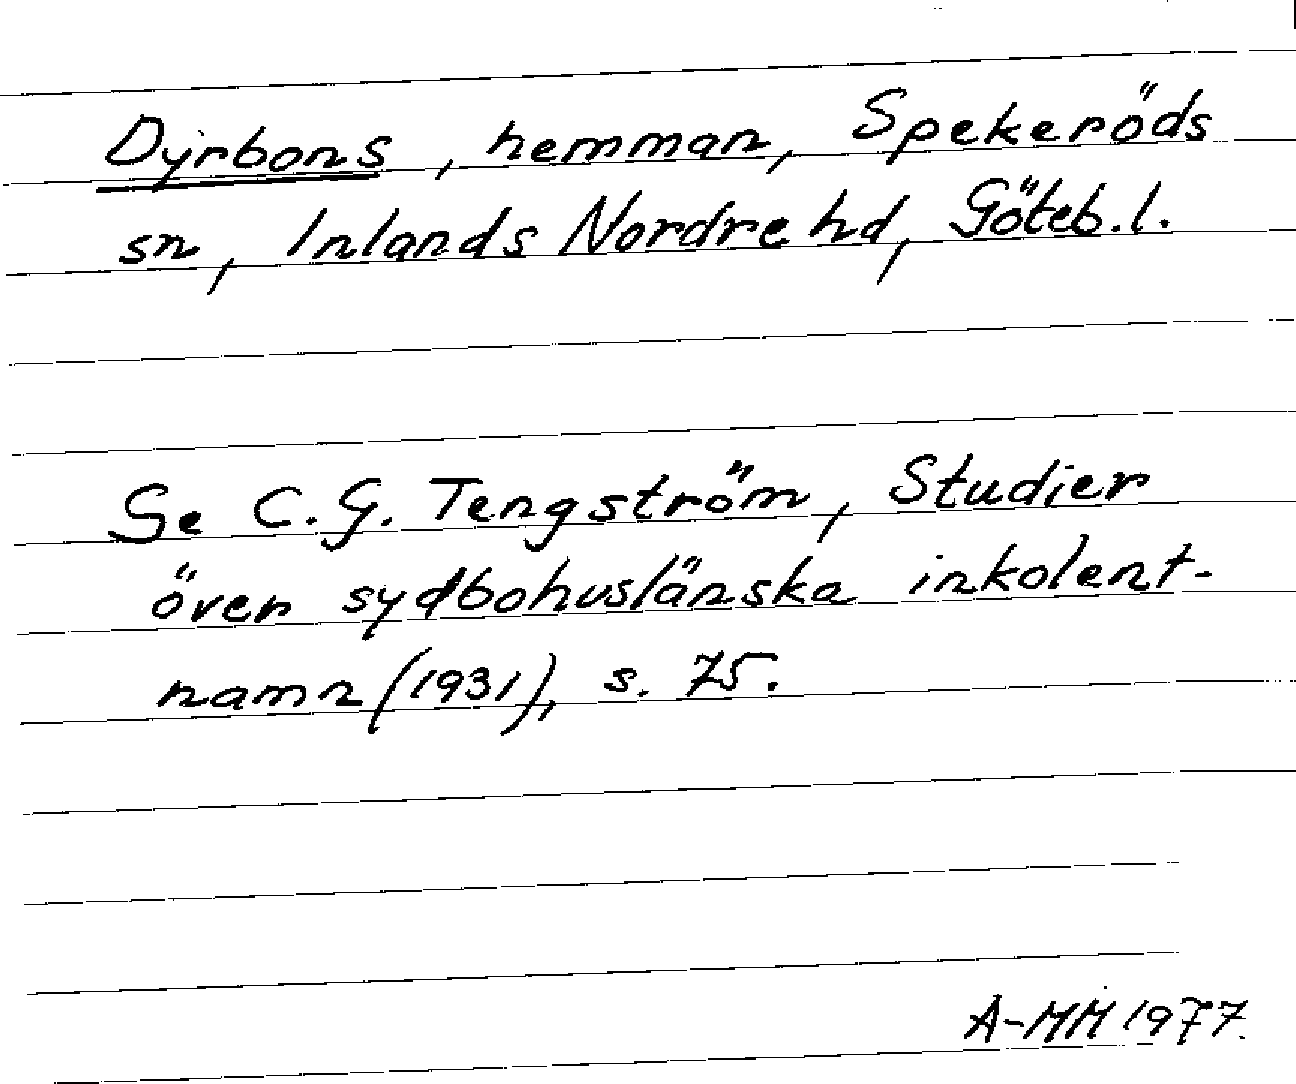 Dyrbons, hemman, Spekeröds
sn, Inlands Nordre hd, Göteb.l.
Se C.G. Tengström, Studier
över sydbohuslänska inkolent-
namn (1931), s. 75.
A-MM 1977.